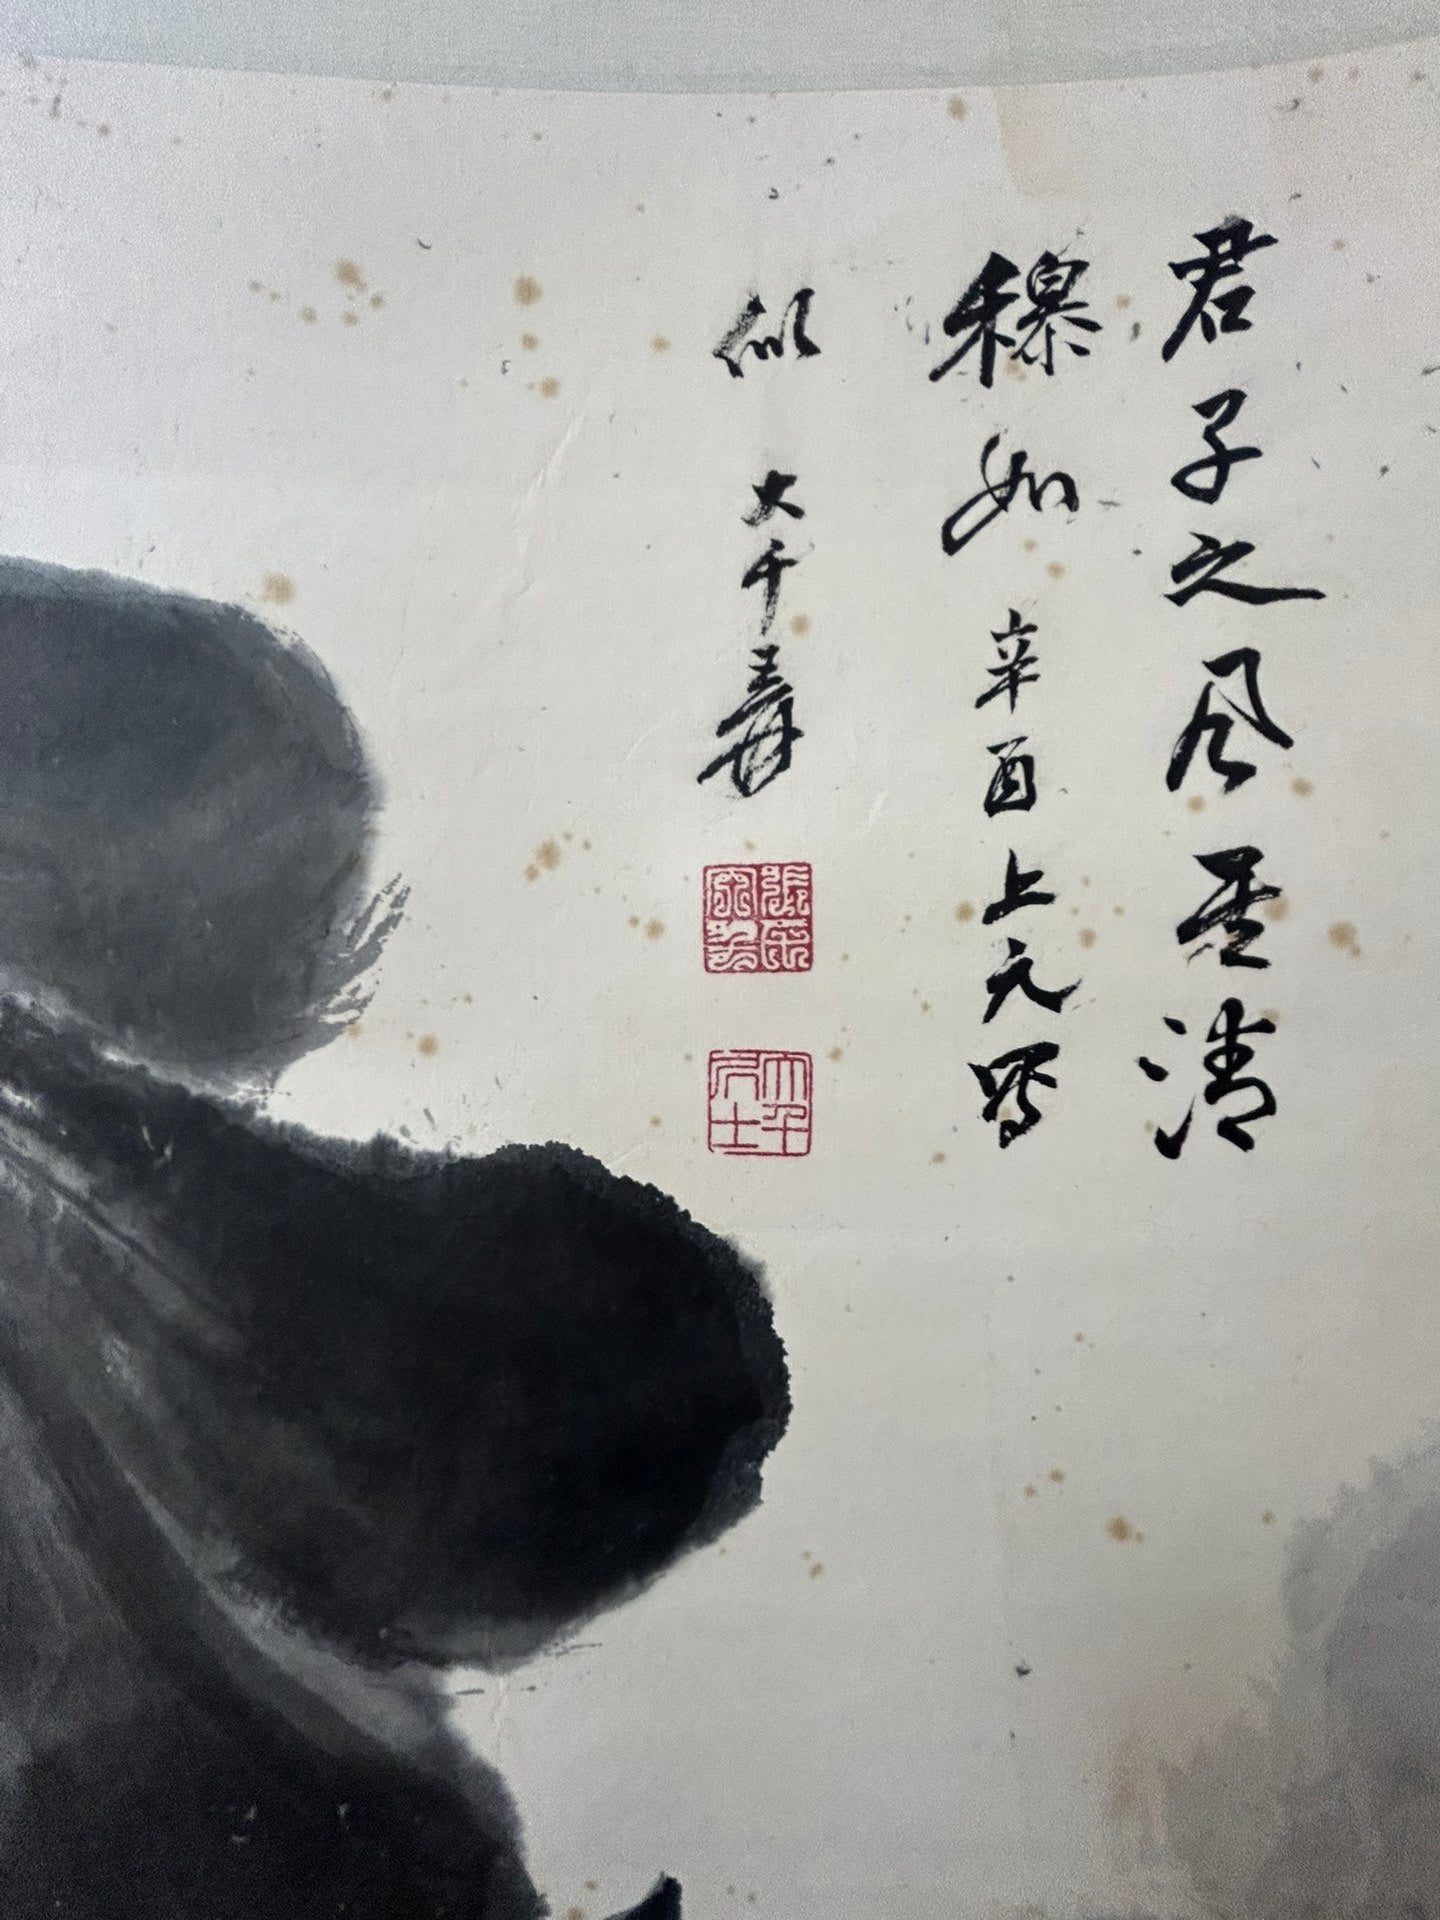 君子之風其清
穆如 辛酉上元寫
似 大千爰
大千居士